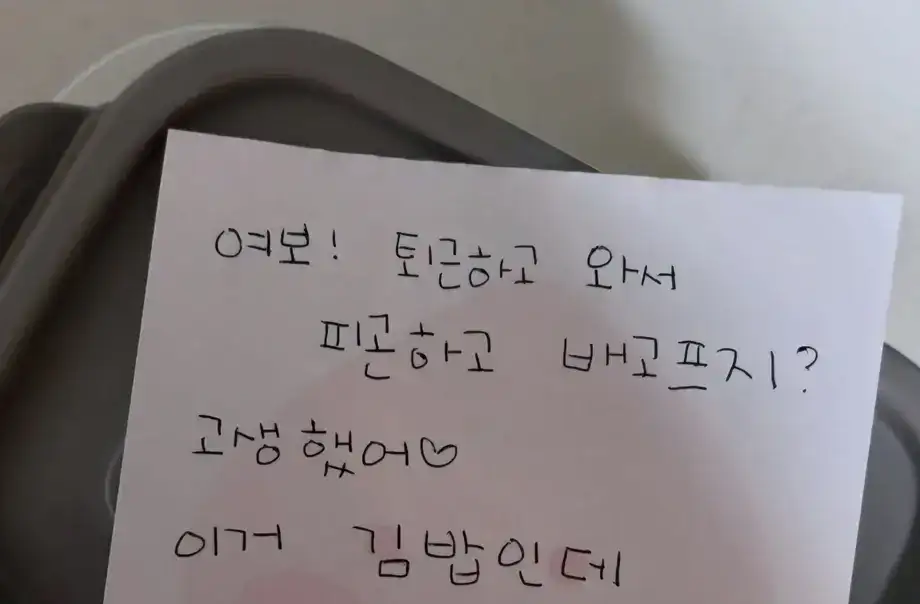 여보! 퇴근하고 와서
피곤하고 배고프지?
고생했어♡
이거 김밥인데